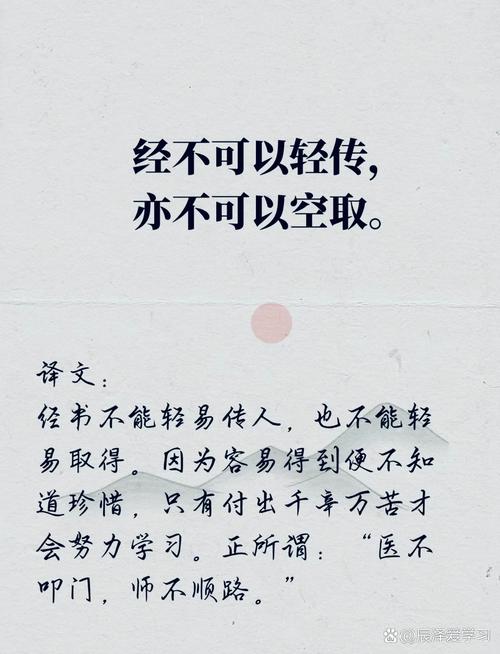 经不可以轻传，
亦不可以空取。
译文：
经书不能轻易传人，也不能轻
易取得。因为容易得到便不知
道珍惜，只有付出千辛万苦才
会努力学习。正所谓：“医不
叩门，师不顺路。”
@辰泽爱学习